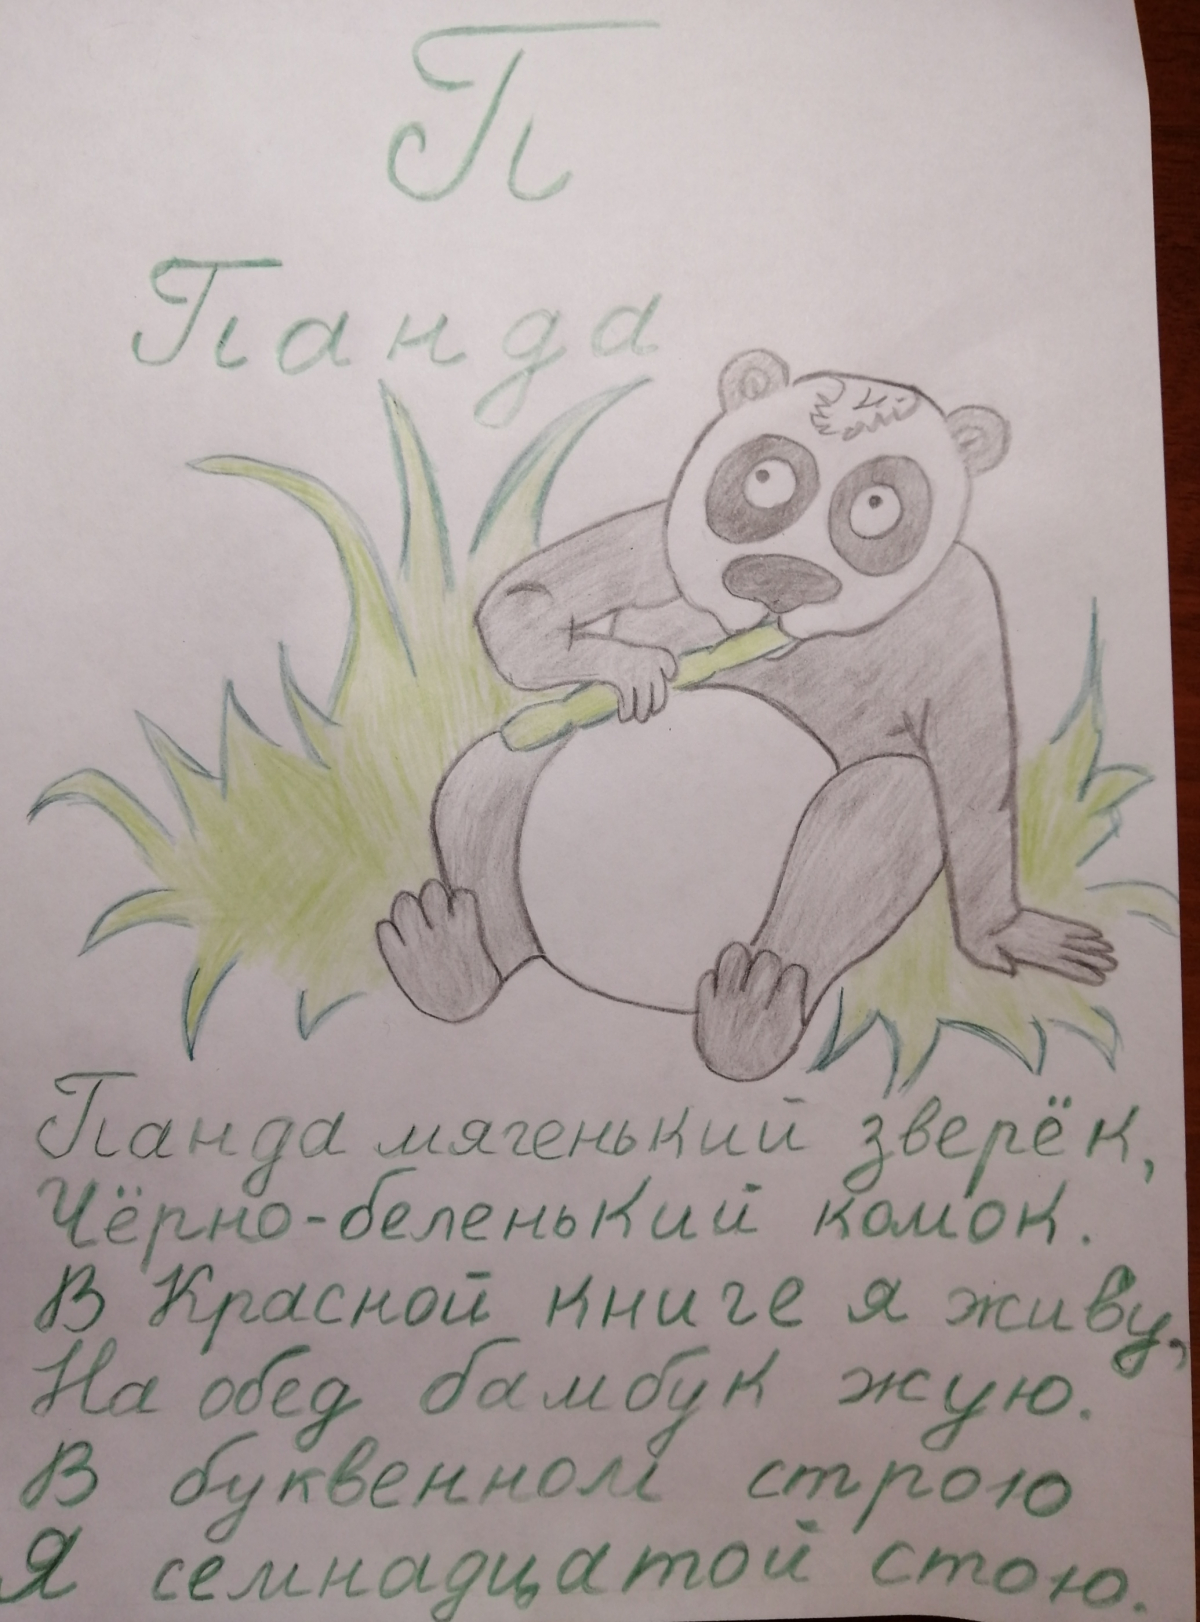 П
Панда
Панда мягенький зверёк,
Чёрно-беленький комок.
В Красной книге я живу,
На обед бамбук жую.
В буквенном строю
Я семнадцатой стою.